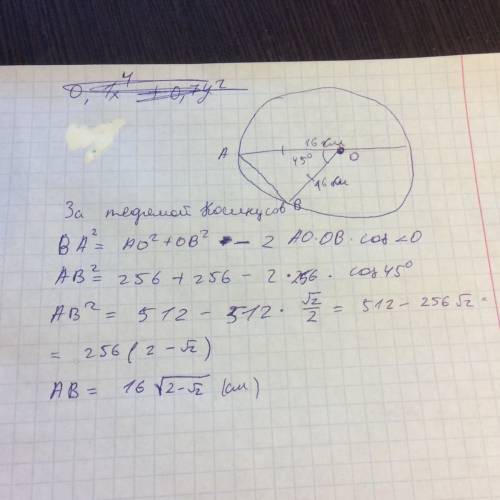 0,1x⁴ + 0,7y²
16 см
A
45°
O
16 см
B
За теоремой Косинусов
BA² = AO² + OB² - 2 AO·OB · cos <O
AB² = 256 + 256 - 2·256 · cos 45°
AB² = 512 - 512 · √2/2 = 512 - 256√2 =
= 256(2 - √2)
AB = 16√(2-√2) (см)